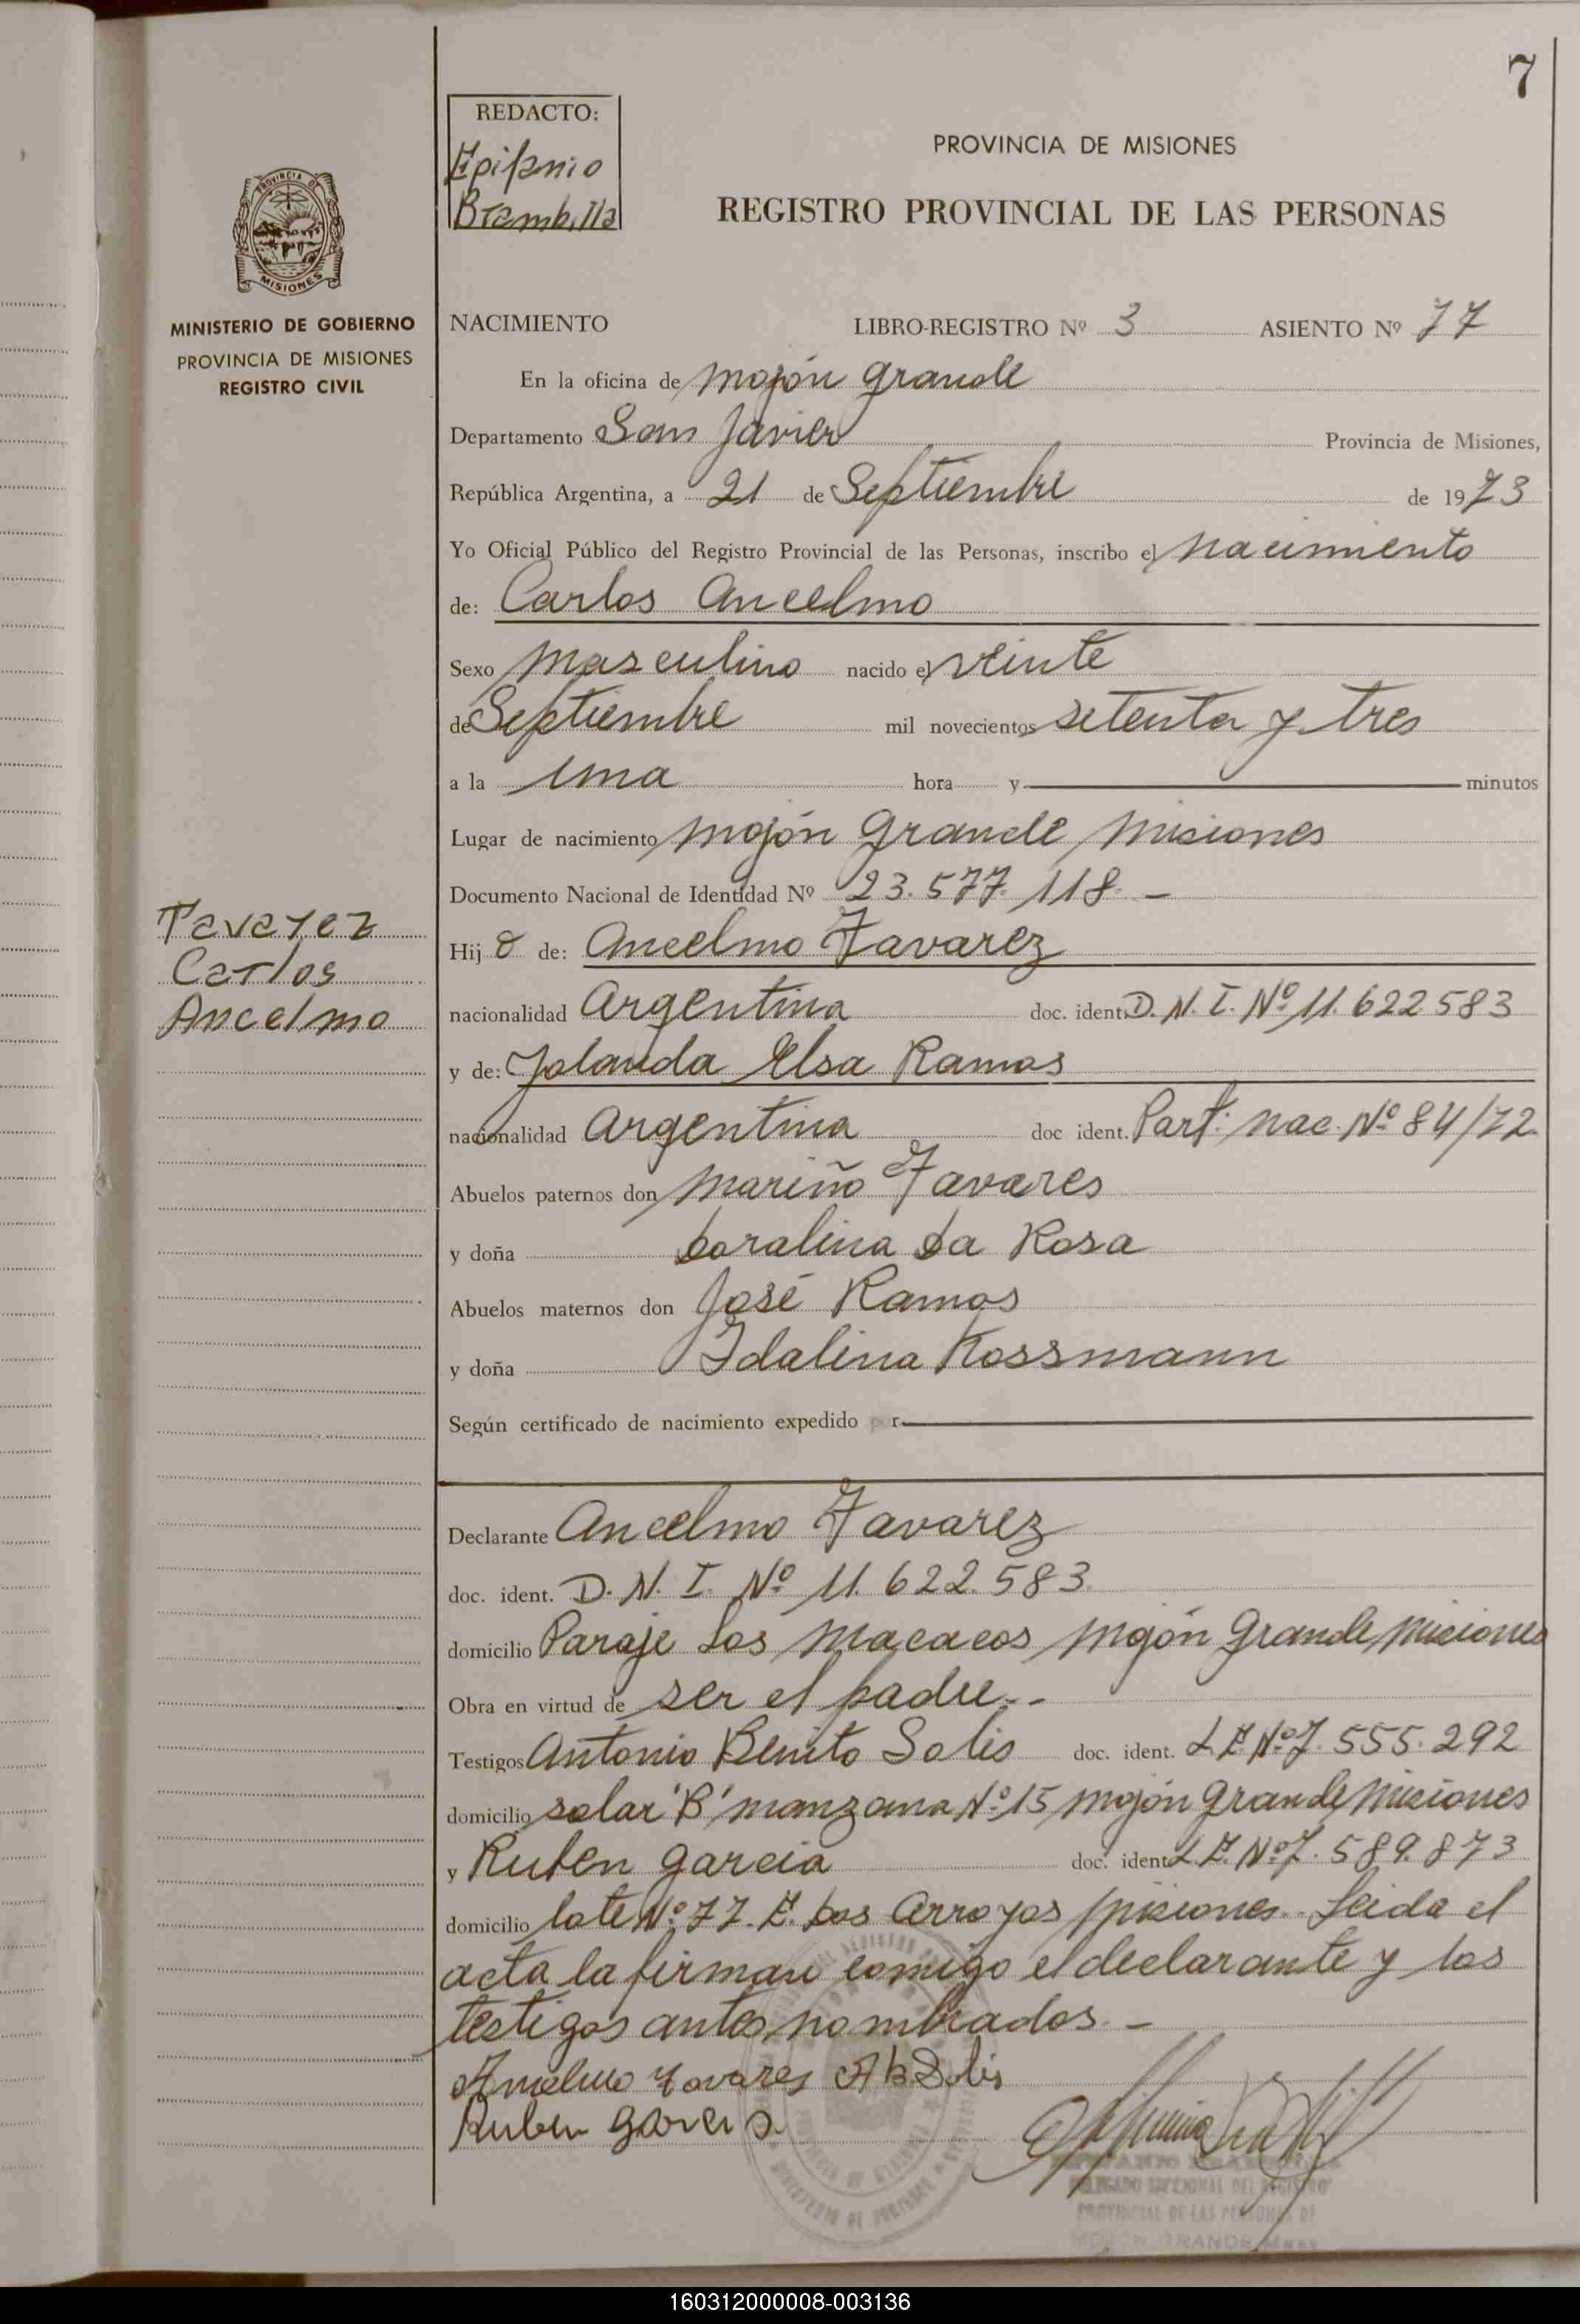 7
REDACTO:
Epifanio
Brambilla
PROVINCIA DE MISIONES
REGISTRO PROVINCIAL DE LAS PERSONAS
PROVINCIA DE
MISIONES
MINISTERIO DE GOBIERNO
PROVINCIA DE MISIONES
REGISTRO CIVIL
NACIMIENTO LIBRO-REGISTRO Nº 3 ASIENTO Nº 77
En la oficina de Mojón Grande
Departamento San Javier Provincia de Misiones,
República Argentina, a 21 de Septiembre de 1973
Yo Oficial Público del Registro Provincial de las Personas, inscribo el nacimiento
de: Carlos Ancelmo
Sexo masculino nacido el veinte
de Septiembre mil novecientos setenta y tres
a la una hora y minutos
Lugar de nacimiento Mojón Grande Misiones
Documento Nacional de Identidad Nº 23.577.118.-
Tavarez
Carlos
Ancelmo
Hijo de: Ancelmo Tavarez
nacionalidad Argentina doc. ident. D.N.I. Nº 11.622583
y de: Jolanda Elsa Ramos
nacionalidad Argentina doc ident. Part. nac. Nº 84/72
Abuelos paternos don Mariño Tavares
y doña Doralina Da Rosa
Abuelos maternos don José Ramos
y doña Idalina Kossmann
Según certificado de nacimiento expedido por
Declarante Ancelmo Tavarez
doc. ident. D.N.I. Nº 11.622.583.
domicilio Paraje Los Macacos Mojón Grande Misiones
Obra en virtud de ser el padre.-
Testigos Antonio Benito Solis doc. ident. L.E. Nº 7.555.292
domicilio solar "B" manzana Nº 15 Mojón Grande Misiones
y Ruben Garcia doc. ident. L.E. Nº 7.589.873
domicilio lote Nº 77. E. Dos Arroyos Misiones. Leida el
acta la firman comigo el declarante y los
testigos antes nombrados.-
Anselmo Tavares A B Solis
Ruben Garcia
DELEGADO SECCIONAL DEL REGISTRO
PROVINCIAL DE LAS PERSONAS DE
MOJON GRANDE
160312000008-003136